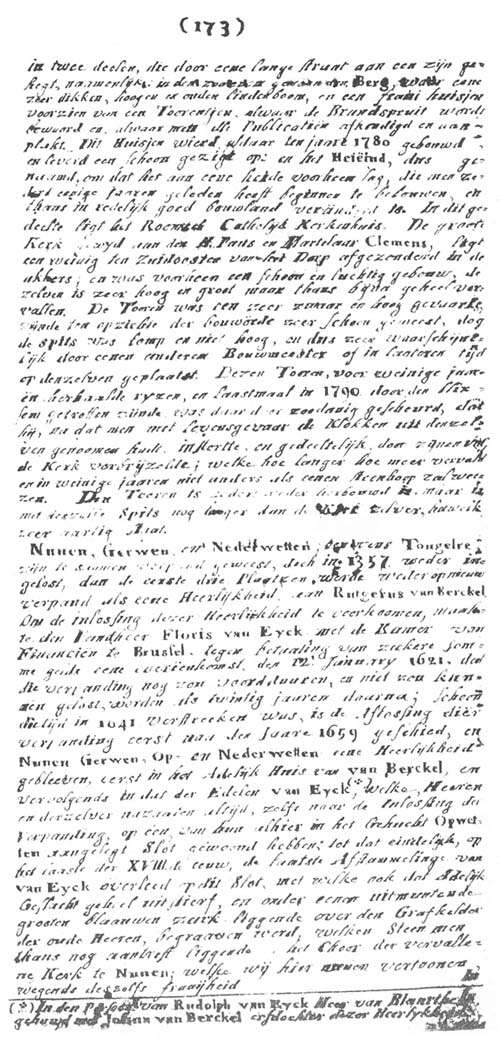 (173)
in twee deelen, die door eene lange straat aan een zijn ge-
hegt, naamenlijk: in den Berg, waar eene
zeer dikken, hoogen en ouden lindeboom, en een fraai huisjen
voorzien van een Toorentjen, alwaar de Brandspruit wordt
bewaard en, alwaar men alle Publicatien afkondigd en aan-
plakt. Dit Huisjen wierd, aldaar ten jaare 1780 gebouwd
en leverd een schoon gezigt op: en het Heiëind, dus ge-
naamd, om dat het aan eene heide voorheen lag, die men ze-
dert eenige jaaren geleden heeft beginnen te bebouwen, en
thans in redelijk goed bouwland veranderd is. In dit ge-
deelte ligt het Roomsch Catholijk Kerkenhuis. De groote
Kerk aan den H. Paus en Martelaar Clemens, ligt
een weinig ten Zuidoosten van het Dorp afgezonderd in de
akkers; en was voorheen een schoon en luchtig gebouw, de
zelven is zeer hoog en groot maar thans bijna geheel ver-
vallen. De Tooren was een zeer zwaar en hoog gevaarte,
zijnde ten opzichte der bouworde zeer schoon geweest, dog
de spits was lomp en niet hoog, en dus zeer waarschijne-
lijk door eenen anderen Bouwmeester of in laateren tijd
op denzelven geplaatst. Dezen Tooren, voor weinige jaar-
en herhaalde ryzen, en laastmaal in 1790 door den Blix-
sem getroffen zijnde, was daar d er zoodanig gescheurd, dat
hij, na dat men met Levensgevaar de Klokken uit denzel-
ven genoomen hadt, instortte, en gedeeltelijk, door zijnen val
de Kerk verbrijzelde; welke hoe langer hoe meer vervalt
en in weinige jaaren niet anders als eenen steenhoop zal wee-
zen. Den Tooren is zeder weder herbouwd maar is
met deszelfs Spits nog langer dan de Kerk zelver, hoewel
zeer aartig staat.
Nunen, Gerwen, en Nederwetten; Tongelre;
zijn te saamen geweest, doch in 1357 weder in-
gelost, dan de eerste drie Plaatzen, werde weder opnieuw
verpand als eene Heerlijkheid, aan Rutgerus van Berckel.
Om de inlossing dezer Heerlijkheid te voorkoomen, maak-
te den Landheer Floris van Eyck met de Kamer van
Financien te Brussel, tegen betaaling van ziekere som-
me gelds eene overeenkomst, den 12e January 1621, dat
die verpanding nog zou voordtduuren, en niet zou kun-
nen gelost worden als twintig jaaren daarna; schoon
die tijd in 1641 verstreeken was, is de Aflossing dier
verpanding eerst in den Jaare 1659 geschied, en
Nunen Gerwen, Op- en Nederwetten eene Heerlijkheid
gebleeven, eerst in het Adelijk Huis van van Berckel, en
vervolgends in dat der Edelen van Eyck (*), welke Heeren
en derzelver nazaaten altijd, zelfs naar de Inlossing der
Verpanding, op een, van hun alhier in het Gehucht Opwet-
ten aangelegt Slot gewoond hebben; tot dat eindelijk, op
het laaste der XVIIIde eeuw, de laatste Afstammelinge van
van Eyck overleed op dit Slot, met welke ook dat Adelijk
Geslacht geheel uitstierf, en onder eenen uitmuntende
grooten blaauwen zerk liggende over den Grafkelder
der oude Heeren, begraaven werd, welken Steen men
thans nog aantreft liggende het Choor der vervalle-
ne Kerk te Nunen; welke wij hier vertoonen
wegends deszelfs fraaiheid.
In
(*) In den Persoon van Rudolph van Eyck Heer van
gehuwd met Johan van Berckel erfdochter dezer Heerlykheid.